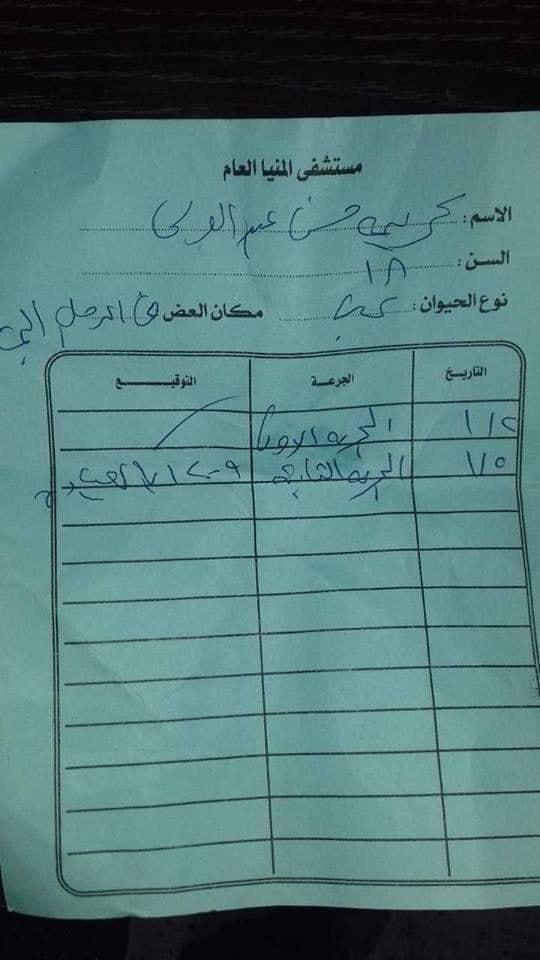 مستشفى المنيا العام
الاسم : كريم حسن عبد
السن : ١٨
نوع الحيوان : كلب مكان العض فى الرجل
التاريخ الجرعة التوقيع
١/٢ الجرعة الاولى
١/٥ الجرعة الثانية